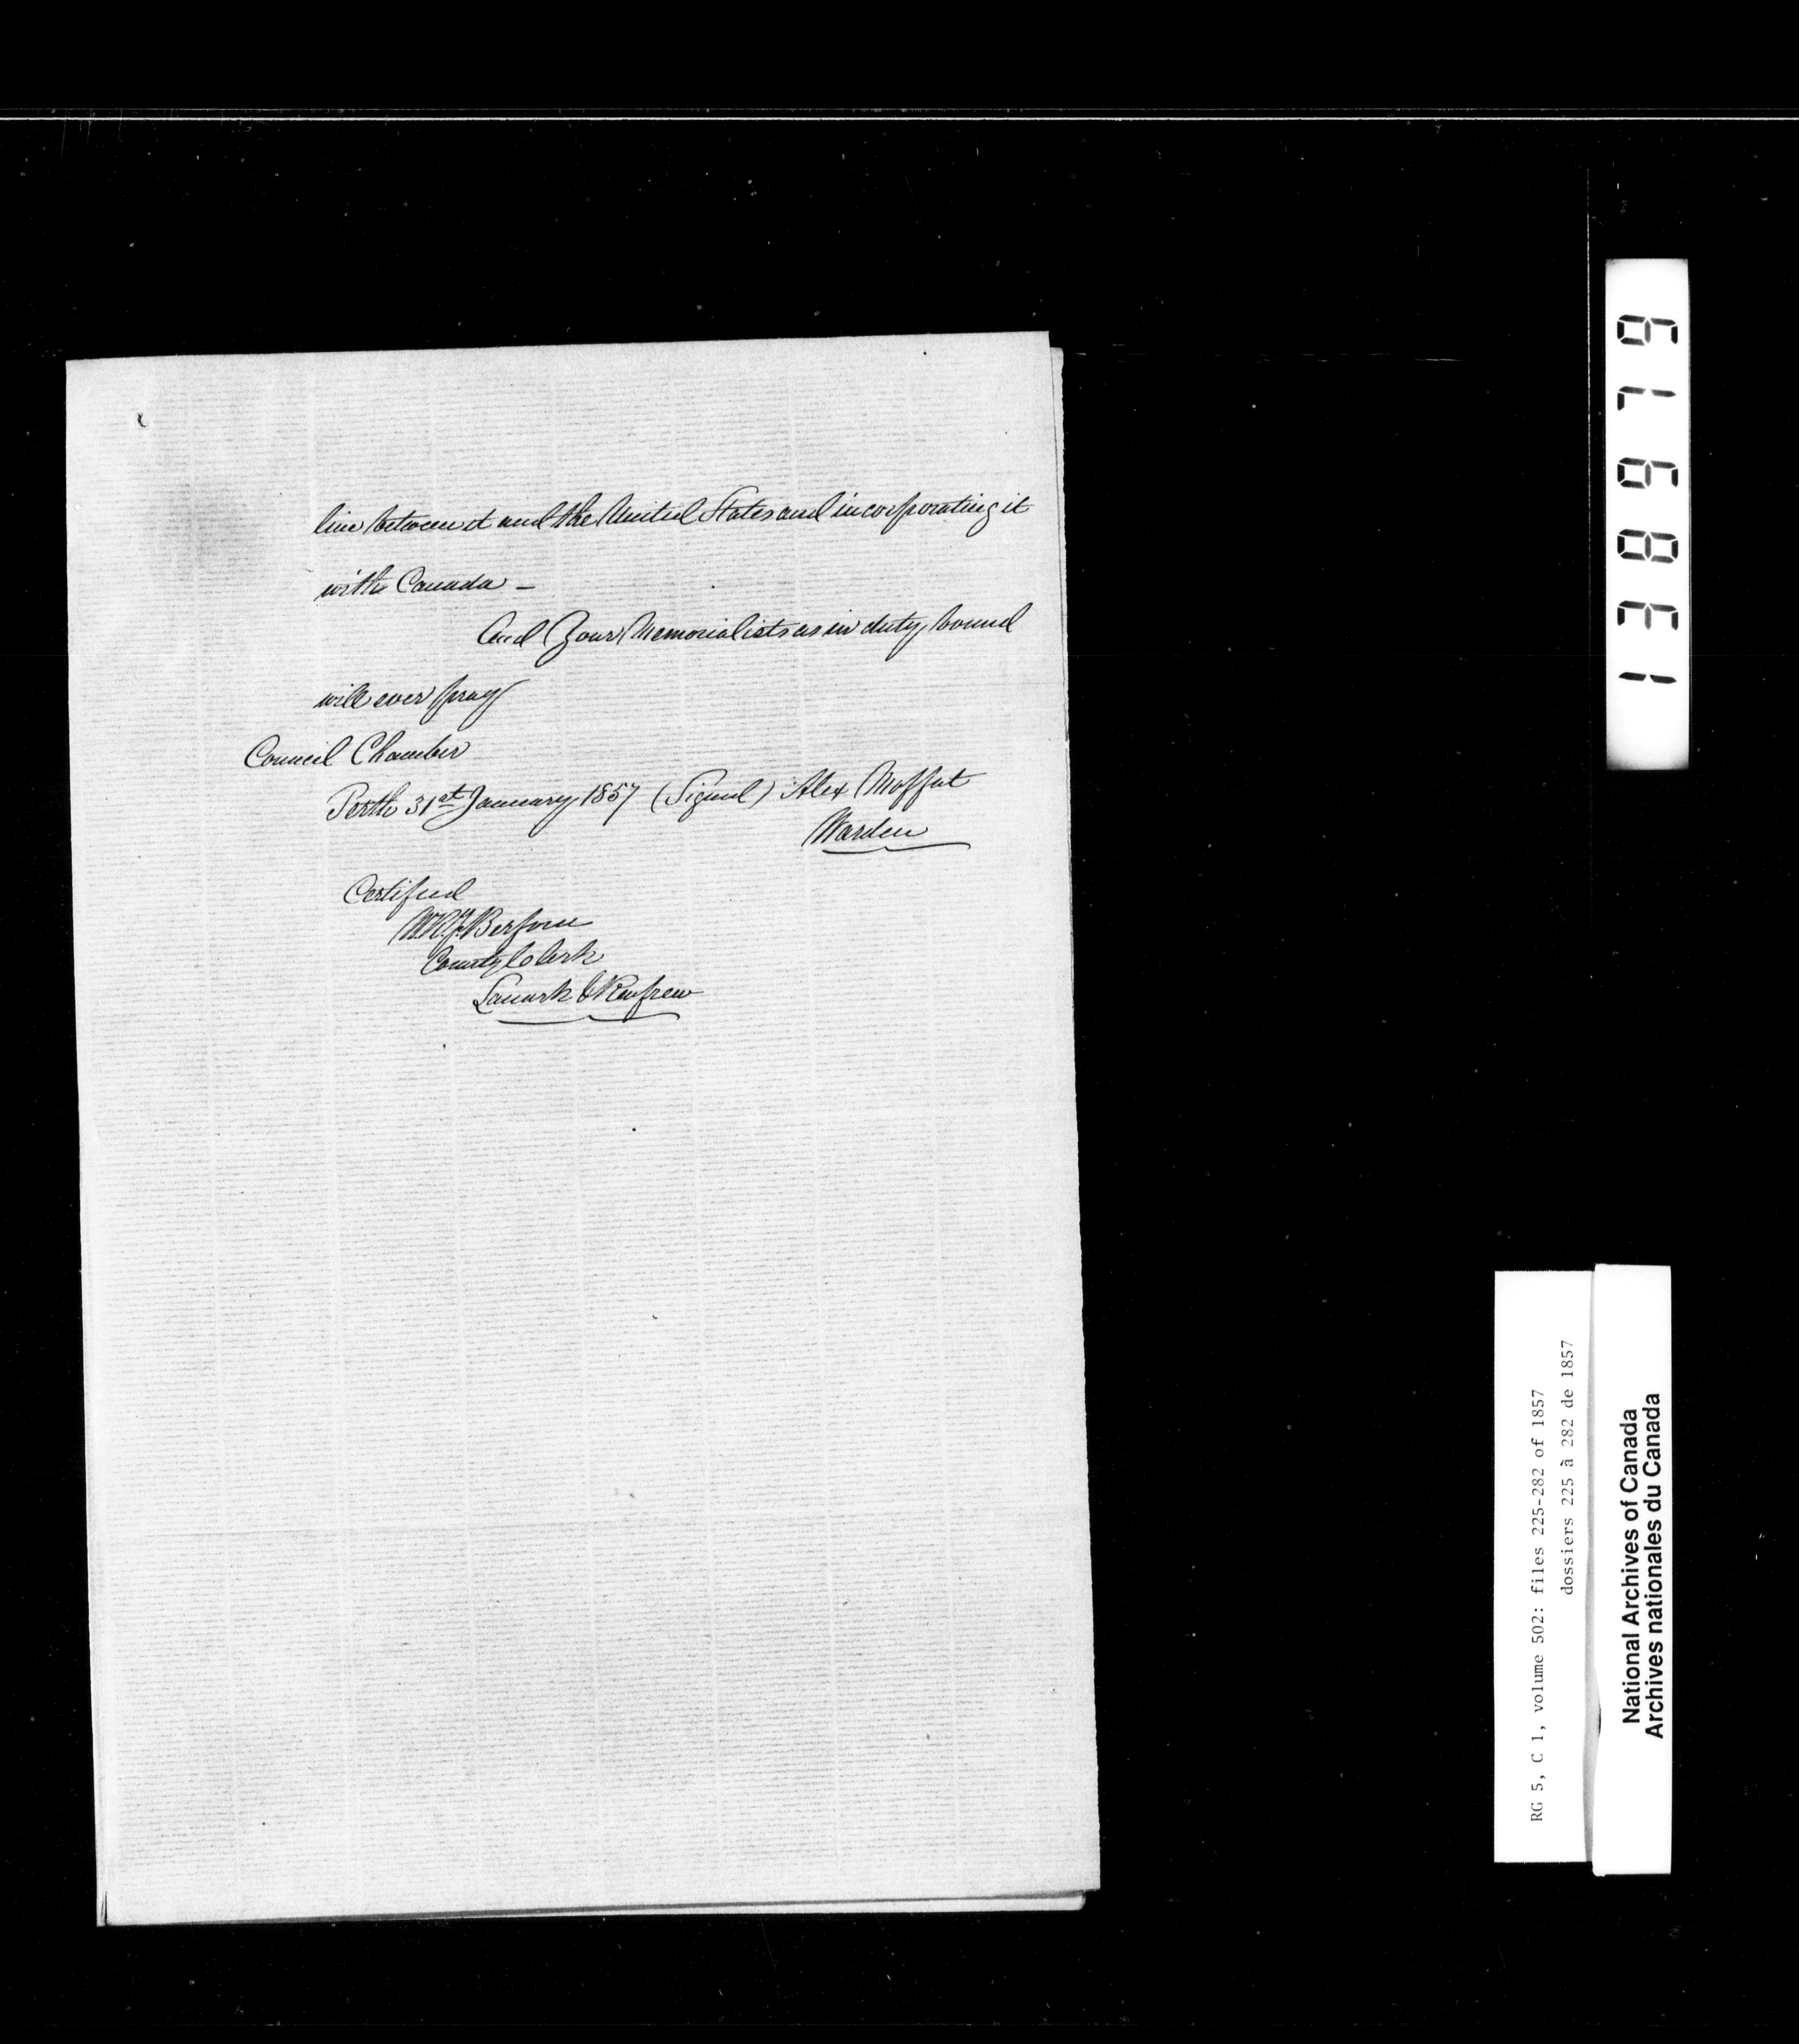 line between it and the United States and incorporating it
with Canada –
And Your Memorialists as in duty bound
will ever pray
Council Chamber
Perth 31st January 1857 (Signed) Alex Moffat
Warden
Certified
County Clerk
Lanark & Renfrew
138979
RG 5, C 1, volume 502: files 225-282 of 1857
dossiers 225 à 282 de 1857
National Archives of Canada
Archives nationales du Canada